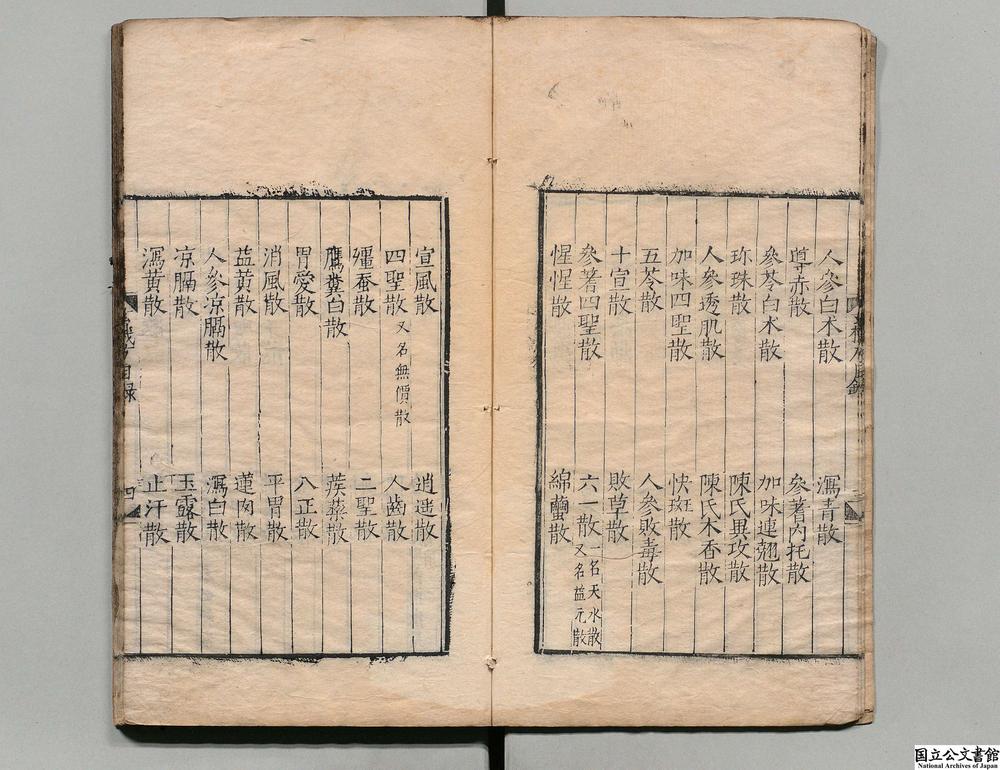 人參白术散
瀉青散
導赤散
參蓍內托散
參苓白术散
加味連翹散
珎珠散
陳氏異攻散
人參透肌散
陳氏木香散
加味四聖散
快斑散
五苓散
人參敗毒散
十宣散
敗草散
參蓍四聖散
六一散 一名天水散
又名益元散
惺惺散
綿蠒散
宣風散
逍遥散
四聖散 又名無價散
人齒散
殭蚕散
二聖散
鷹糞白散
蒺藜散
胃愛散
八正散
消風散
平胃散
益黄散
蓮肉散
人參凉膈散
瀉白散
凉膈散
玉露散
瀉黄散
止汗散
目録
四
国立公文書館
National Archives of Japan